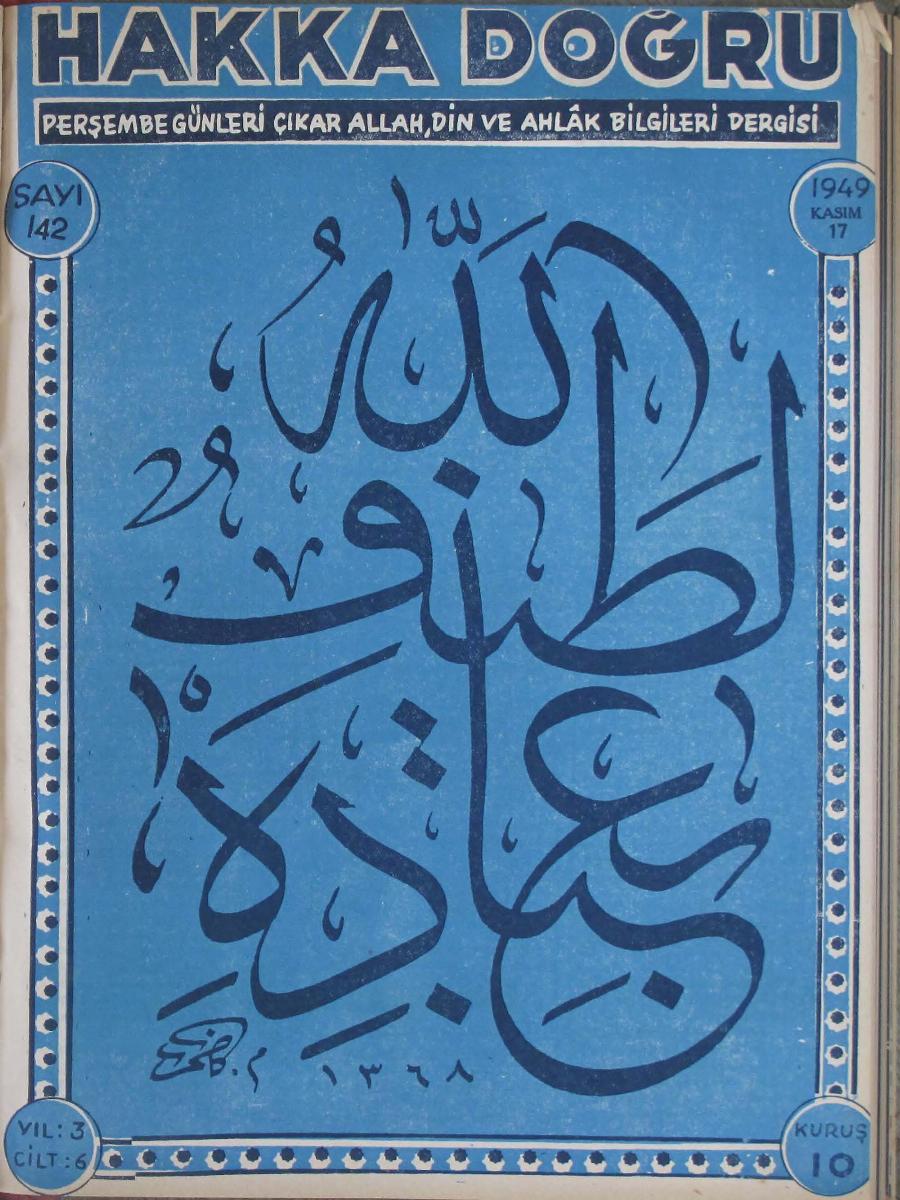 HAKKA DOĞRU
PERŞEMBE GÜNLERİ ÇIKAR ALLAH, DİN VE AHLÂK BİLGİLERİ DERGİSİ
SAYI
142
1949
KASIM
17
اللّٰهُ
لَطِيفٌ
بِعِبَادِهِ
١٣٦٨
YIL: 3
CİLT: 6
KURUŞ
10